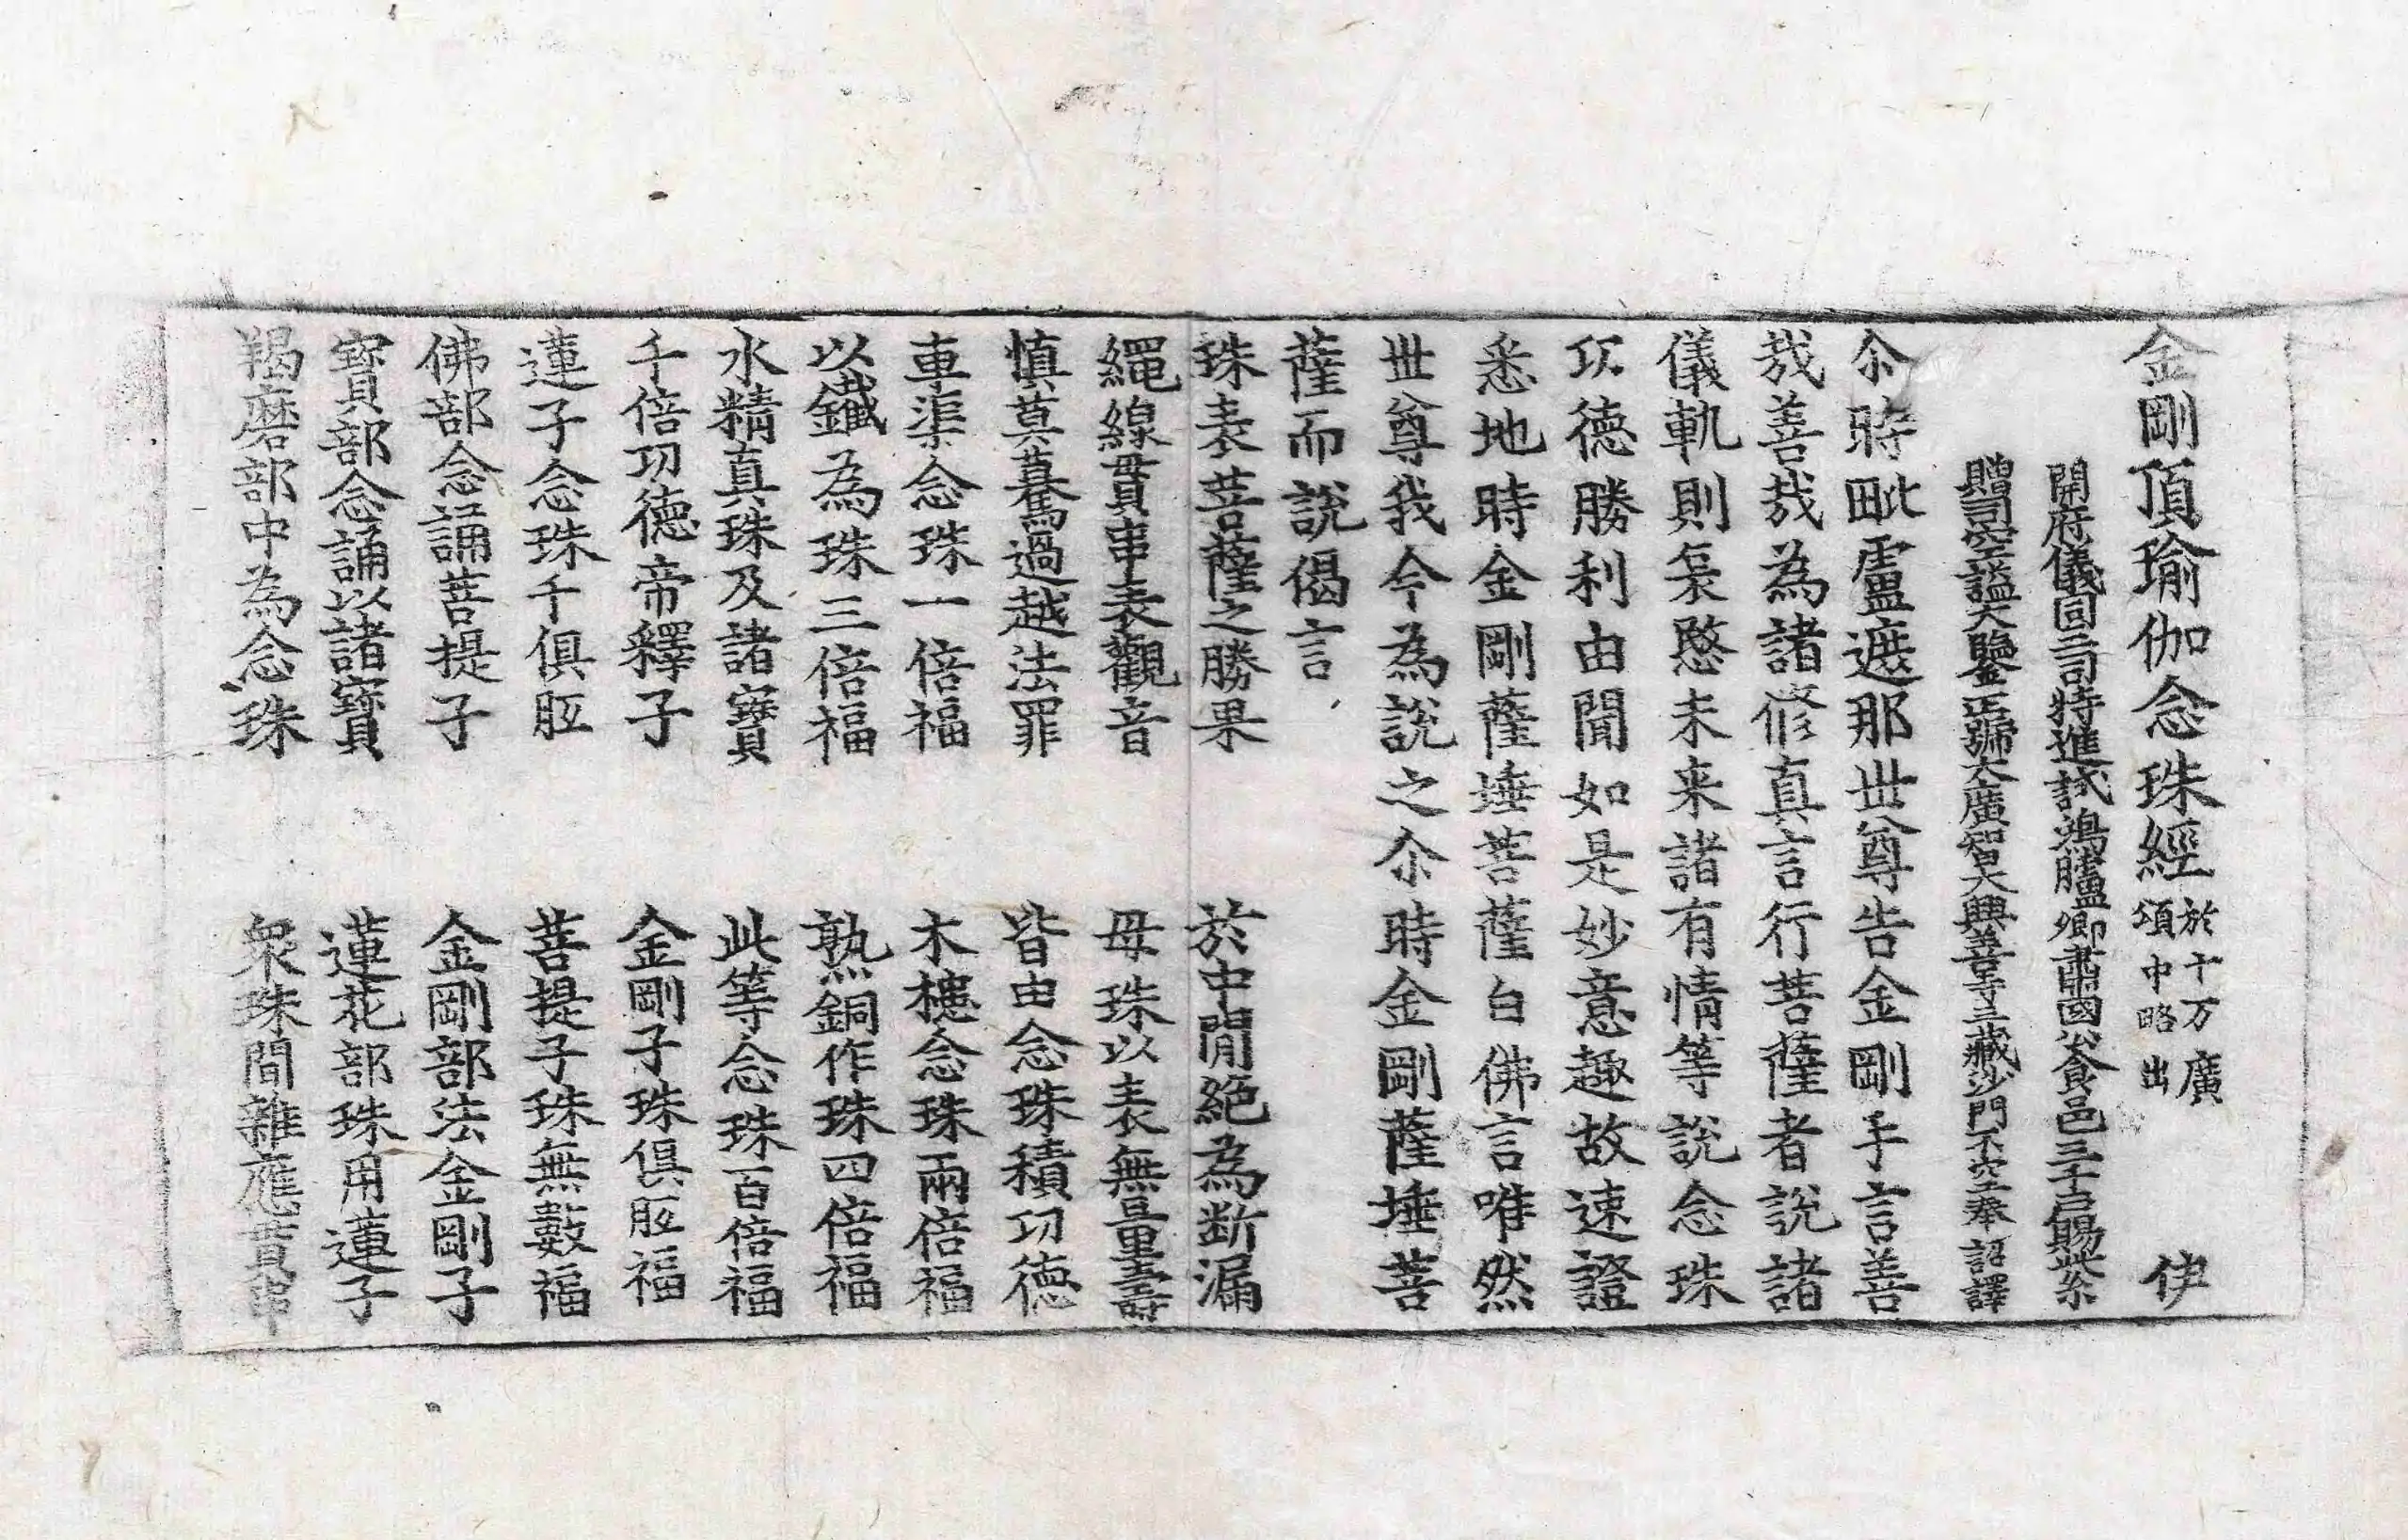 金剛頂瑜伽念珠經 於十万廣頌中略出 伊
開府儀同三司特進試鴻臚卿肅國公食邑三千戶賜紫
贈司空謚大鑒正號大廣智大興善寺三藏沙門不空奉 詔譯
尒時毗盧遮那世尊告金剛手言善
㢤善㢤為諸修真言行菩薩者說諸
儀軌則哀愍未来諸有情等說念珠
功德勝利由聞如是妙意趣故速證
悉地時金剛薩埵菩薩白佛言唯然
世尊我今為說之尒時金剛薩埵菩
薩而說偈言
珠表菩薩之勝果 於中間絕為断漏
繩線貫串表觀音 母珠以表無量壽
慎莫驀過越法罪 皆由念珠積功德
車渠念珠一倍福 木槵念珠兩倍福
以鐵為珠三倍福 熟銅作珠四倍福
水精真珠及諸寶 此等念珠百倍福
千倍功德帝釋子 金剛子珠俱胝福
蓮子念珠千俱胝 菩提子珠無數福
佛部念誦菩提子 金剛部法金剛子
寶部念誦以諸寶 蓮花部珠用蓮子
羯磨部中為念珠 衆珠間雜應貫串